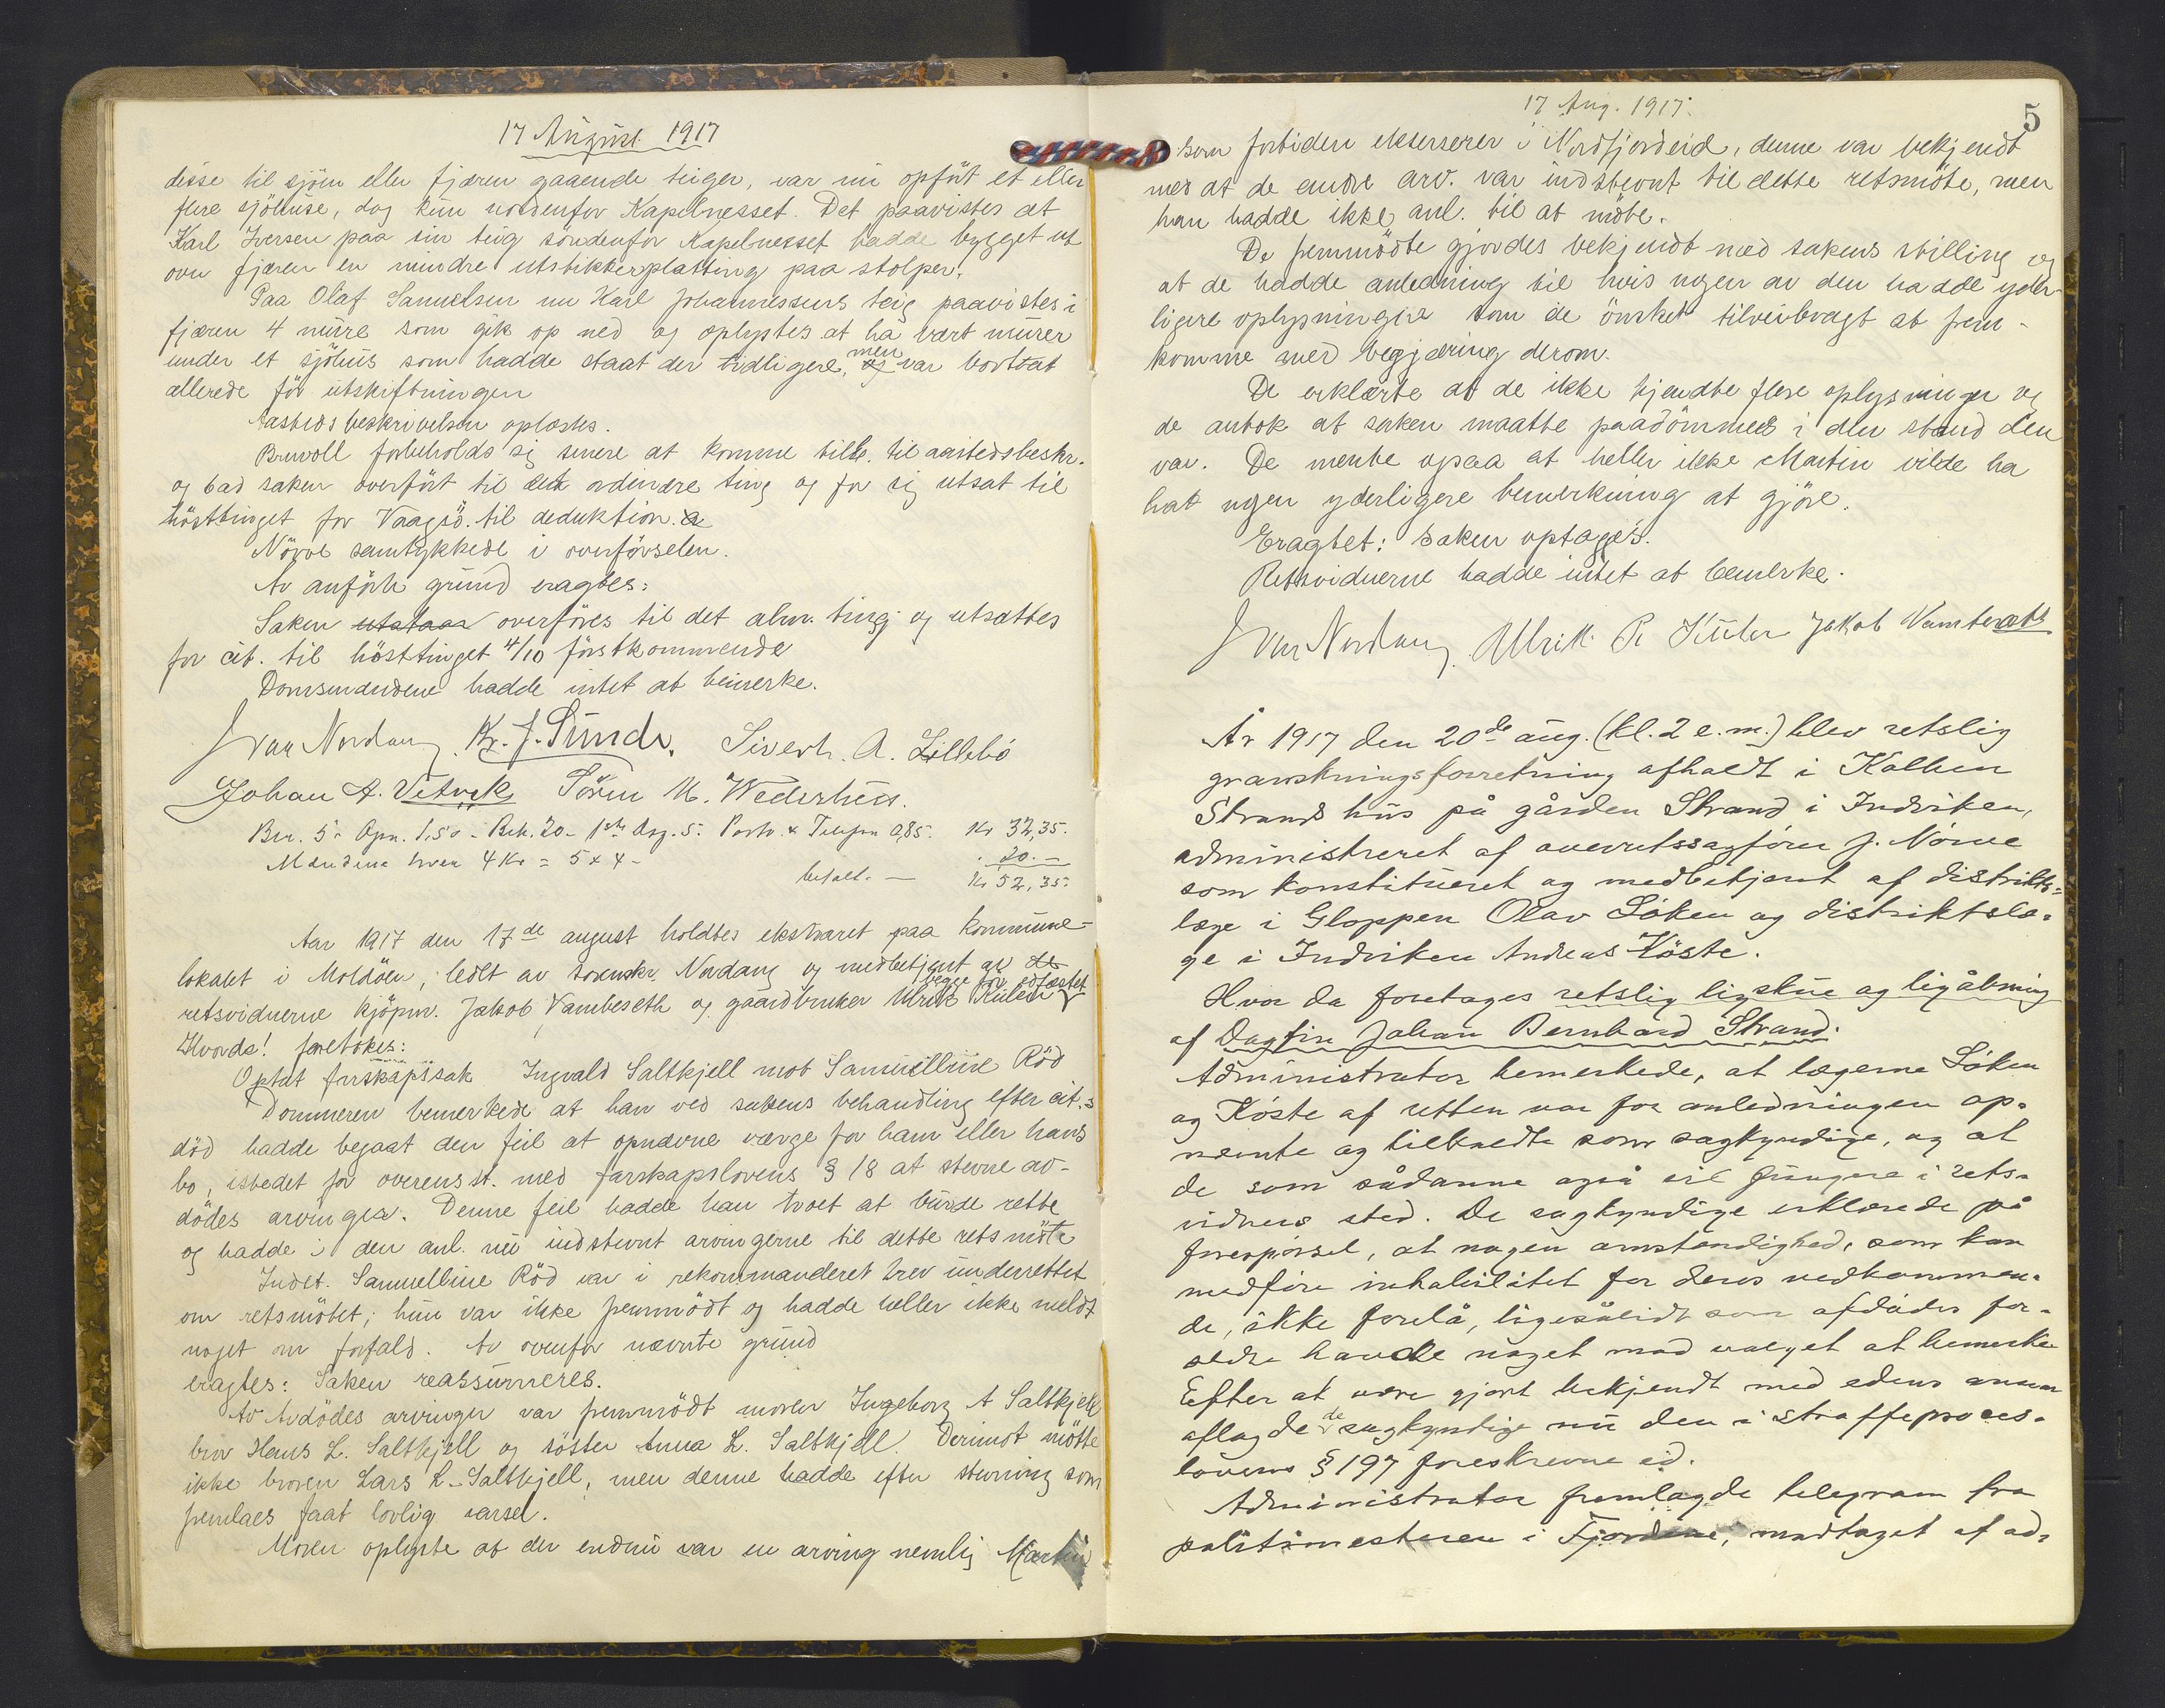 17 August 1917
disse til sjöen eller fjæren gaaende teiger, var nu opfört et eller
flere sjöhuse, dog kun nordenfor Kapelnesset. Det paavistes at
Karl Iversen paa sin teig söndenfor Kapelnesset hadde bygget ut
over fjæren en mindre utstikkerplatting paa stolper.
Paa Olaf Samuelsen nu Karl Johannessens teig paavistes i
fjæren 4 murer som gik op ned og oplystes at ha vært murer
under et sjöhus som hadde staat der tidligere, men var borttat
allerede för utskiftningen
Aastedsbeskrivelsen oplæstes.
Bruvoll forbeholdt sig senere at komme till. til aastedsbeskr.
og bad saken overfört til det ordinære ting og for sig utsat til
hösttinget for Vaagsö til deduktion.
Nörve samtykkede i overförselen.
Av anförte grund eragtes:
Saken utstaar overföres til det alm. ting og utsættes
for cit. til hösttinget 4/10 förstkommende
Domsmændene hadde intet at bemerke.
Ivar Nordang Kr. J. Sunde. Sivert. A. Lillebö
Johan A. Vetvik Sören M. Wedershus.
Ber. 5.- Opn. 1,50 - Bek. 20 - 1ste Avg. 5. Porto & Telefon 0,85. Kr 32,35.
Mændene hver 4 Kr = 5 x 4 - 20.-
betalt. — Kr 52,35.
Aar 1917 den 17de august holdtes ekstraret paa kommune-
lokalet i Moldöen, ledet av sorenskr. Nordang og medbetjent av de
begge för edfæstet
retsvidnerne kjöpm. Jakob Vambeseth og gaardbruker Ulrik Kulen
Hvorda! foretokes:
Optat farskapssak Ingvald Saltkjell mot Samuelline Röd
Dommeren bemerkede at han ved sakens behandling efter cit.s
död hadde begaat den feil at opnævne værge for ham eller hans
bo, istedet for overensst. med farskapslovens § 18 at stevne av-
dödes arvinger. Denne feil hadde han troet at burde rette
og hadde i den anl. nu indstevnt arvingerne til dette retsmöte
Indst. Samuelline Röd var i rekommanderet brev underrettet
om retsmötet; hun var ikke fremmödt og hadde heller ikke meldt
noget om forfald. Av ovenfor nævnte grund
eragtes: Saken reassumeres.
Av Avdödes arvinger var fremmödt moren Ingeborg A Saltkjell
bror Hans L. Saltkjell og söster Anna L. Saltkjell. Derimot mötte
ikke broren Lars L. Saltkjell, men denne hadde efter stevning som
fremlaes faat lovlig varsel.
Moren oplyste at der endnu var en arving nemlig Martin
17 Aug. 1917.
5
som fortiden ekserserer i Nordfjordeid, denne var bekjendt
med at de andre arv. var indstevnt til dette retsmöte, men
han hadde ikke anl. til at möte.
De fremmödte gjordes bekjendt med sakens stilling og
at de hadde anledning til hvis nogen av dem hadde yder-
ligere oplysninger som de önsket tilveiebragt at frem-
komme med begjæring derom.
De erklærte at de ikke kjendte flere oplysninger og
de antok at saken maatte paadömmes i den stand den
var. De mente ogsaa at heller ikke Martin vilde ha
hat nogen yderligere bemerkning at gjöre.
Eragtet: Saken optages.
Retsvidnerne hadde intet at bemerke.
Ivar Nordang. Ulrik R Kulen Jakob Vambeseth
År 1917 den 20de aug. (kl. 2 e.m.) blev retslig
granskningsforretning afholdt i Kolbein
Strands hus på gården Strand i Indviken,
administreret af overretssagförer J. Nörve
som konstitueret og medbetjent af distrikts-
læge i Gloppen Olav Löken og distriktslæ-
ge i Indviken Andreas Köste.
Hvor da foretages retslig ligskue og ligåbning
af Dagfin Johan Bernhard Strand.
Administrator bemerkede, at lægerne Löken
og Köste af retten var for anledningen op-
nævnte og tilkaldte som sagkyndige, og at
de som sådanne også vil fungere i rets-
vidners sted. De sagkyndige erklærede på
forespörsel, at nogen omstændighed, som kan
medföre inhabilitet for deres vedkommen-
de, ikke forelå, ligesålidt som afdödes for-
ældre havde noget mod valget at bemerke.
Efter at være gjort bekjendt med edens ansvar
aflagde de sagkyndige nu den i straffeproces-
lovens § 197 foreskrevne ed.
Administrator fremlagde telegram fra
politimesteren i Fjordene, modtaget af ad-